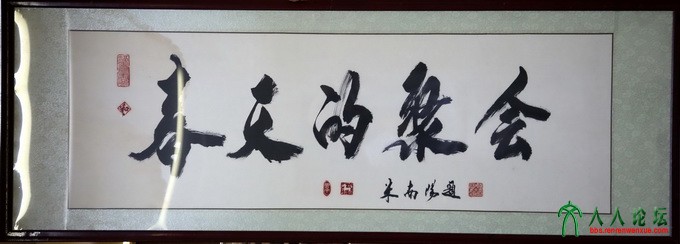 春天的聚会
米南陽題
人人论坛
bbs.renrenwenxue.com